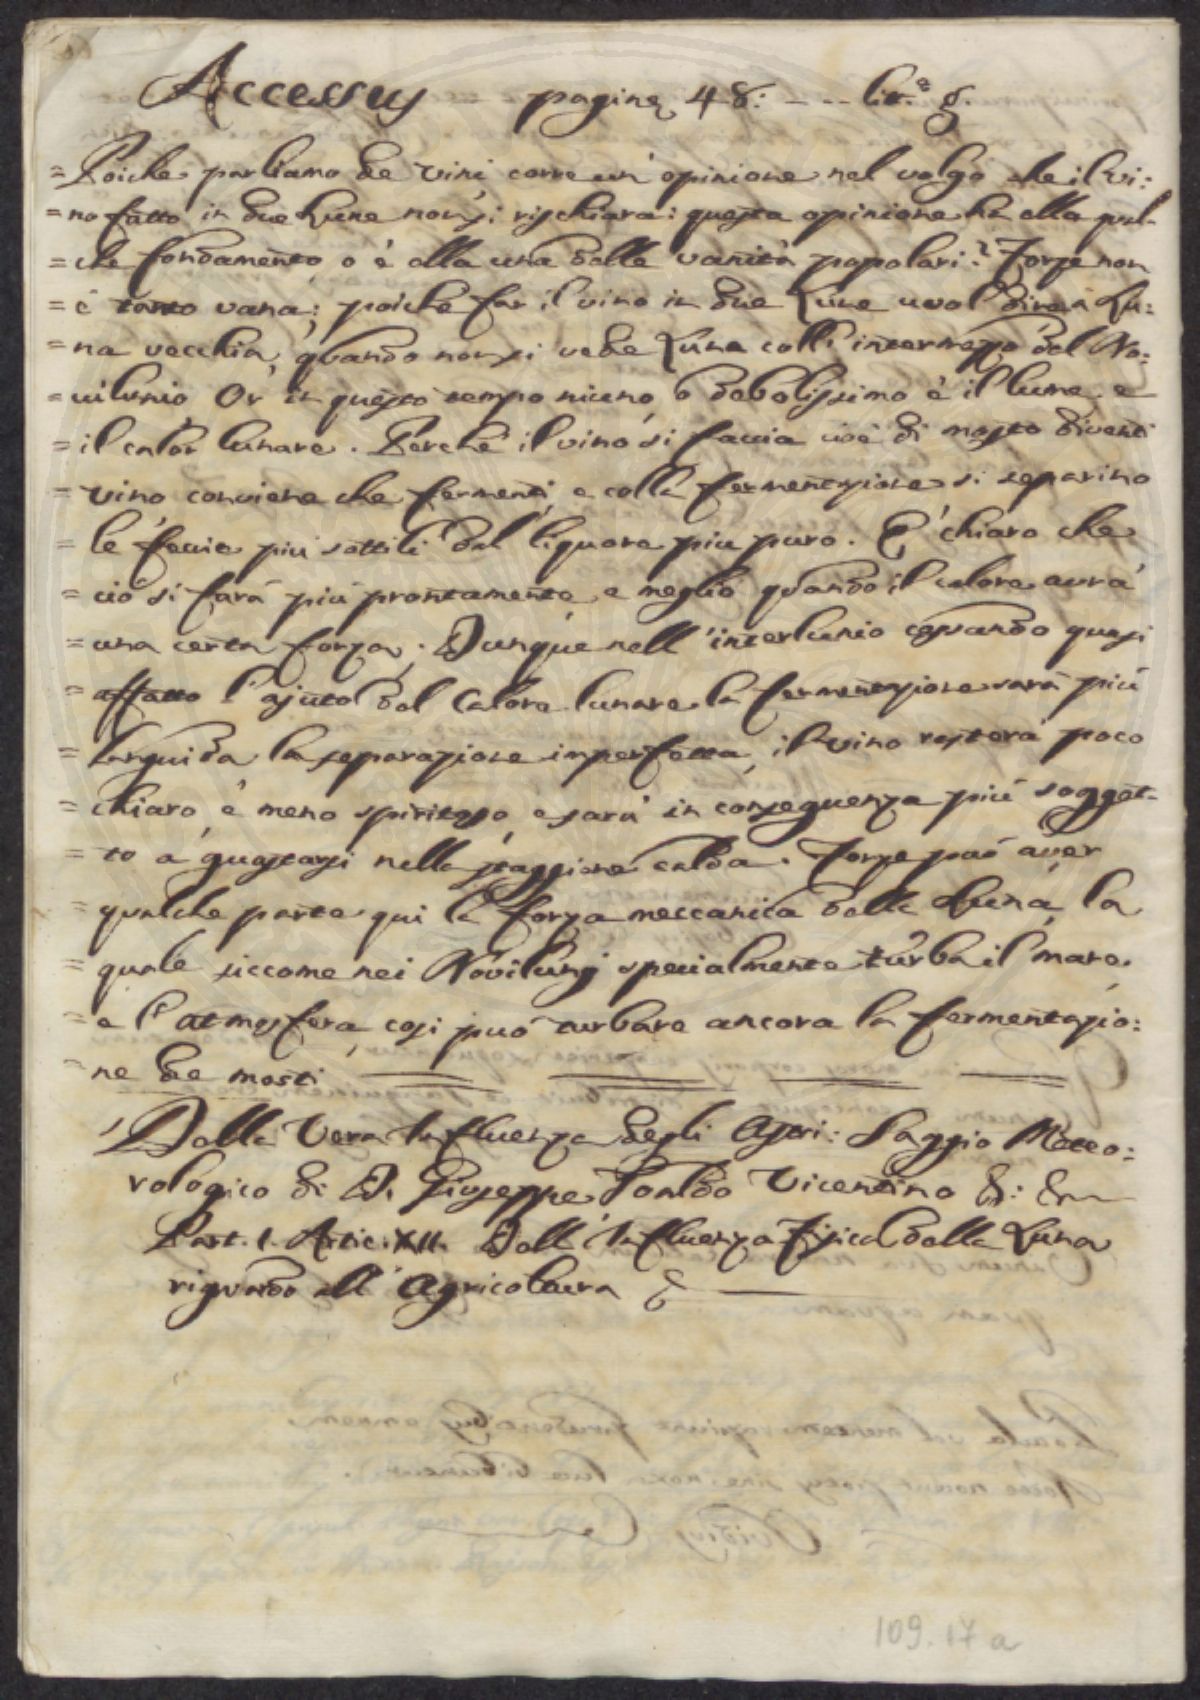 Accessus pagine 48: - - - litt.ª g.
= Poiche parliamo de vini corre un' opinione nel volgo che il vi:
= no fatto in due Lune non si rischiara: questa opinione ha ella qual-
= che fondamento, o è ella una delle vanità popolari? Forse non
= è tanto vana; poiche far il vino in due Lune vuol dire a Lu:
= na vecchia, quando non si vede Luna coll' intermezzo del No:
= vilunio Or in questo tempo niuno, o debolissimo è il lume, e
= il calor lunare. Perchè il vino si faccia cioè di mosto diventi
= vino conviene che fermenti, e colla fermentazione si separino
= le feccie più sottili dal liquore più puro. E' chiaro che
= ciò si farà più prontamente, e meglio quando il calore avrà
= una certa forza. Dunque nell' interlunio cessando quasi
= affatto l' ajuto del Calore lunare la fermentazione sarà più
= languida la separazione imperfetta, il vino resterà poco
= chiaro, e meno spiritoso, e sarà in conseguenza più sogget-
= to a guastarsi nella staggione calda. Forse può aver
= qualche parte qui la forza meccanica della Luna, la
= quale siccome nei Novilunj specialmente turba il mare,
= e l' atmosfera, così può turbare ancora la fermentazio:
= ne de mosti
Della Vera Influenza degli Astri: Saggio Meteo:
rologico di D. Giuseppe Toaldo Vicentino &: &
Part. I. Artic. XII. Dell' Influenza Fisica della Luna
riguardo all' Agricoltura &
109. 17 a